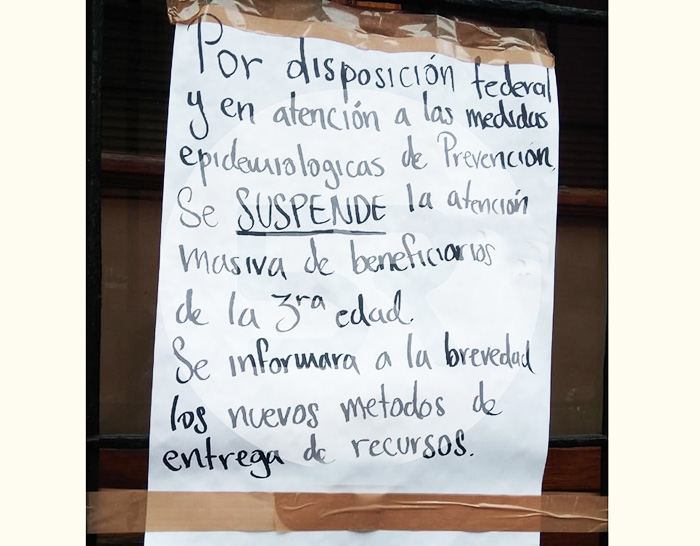 Por disposición federal
y en atención a las medidas
epidemiologicas de Prevención,
Se SUSPENDE la atención
masiva de beneficiarios
de la 3ra edad.
Se informara a la brevedad
los nuevos metodos de
entrega de recursos.